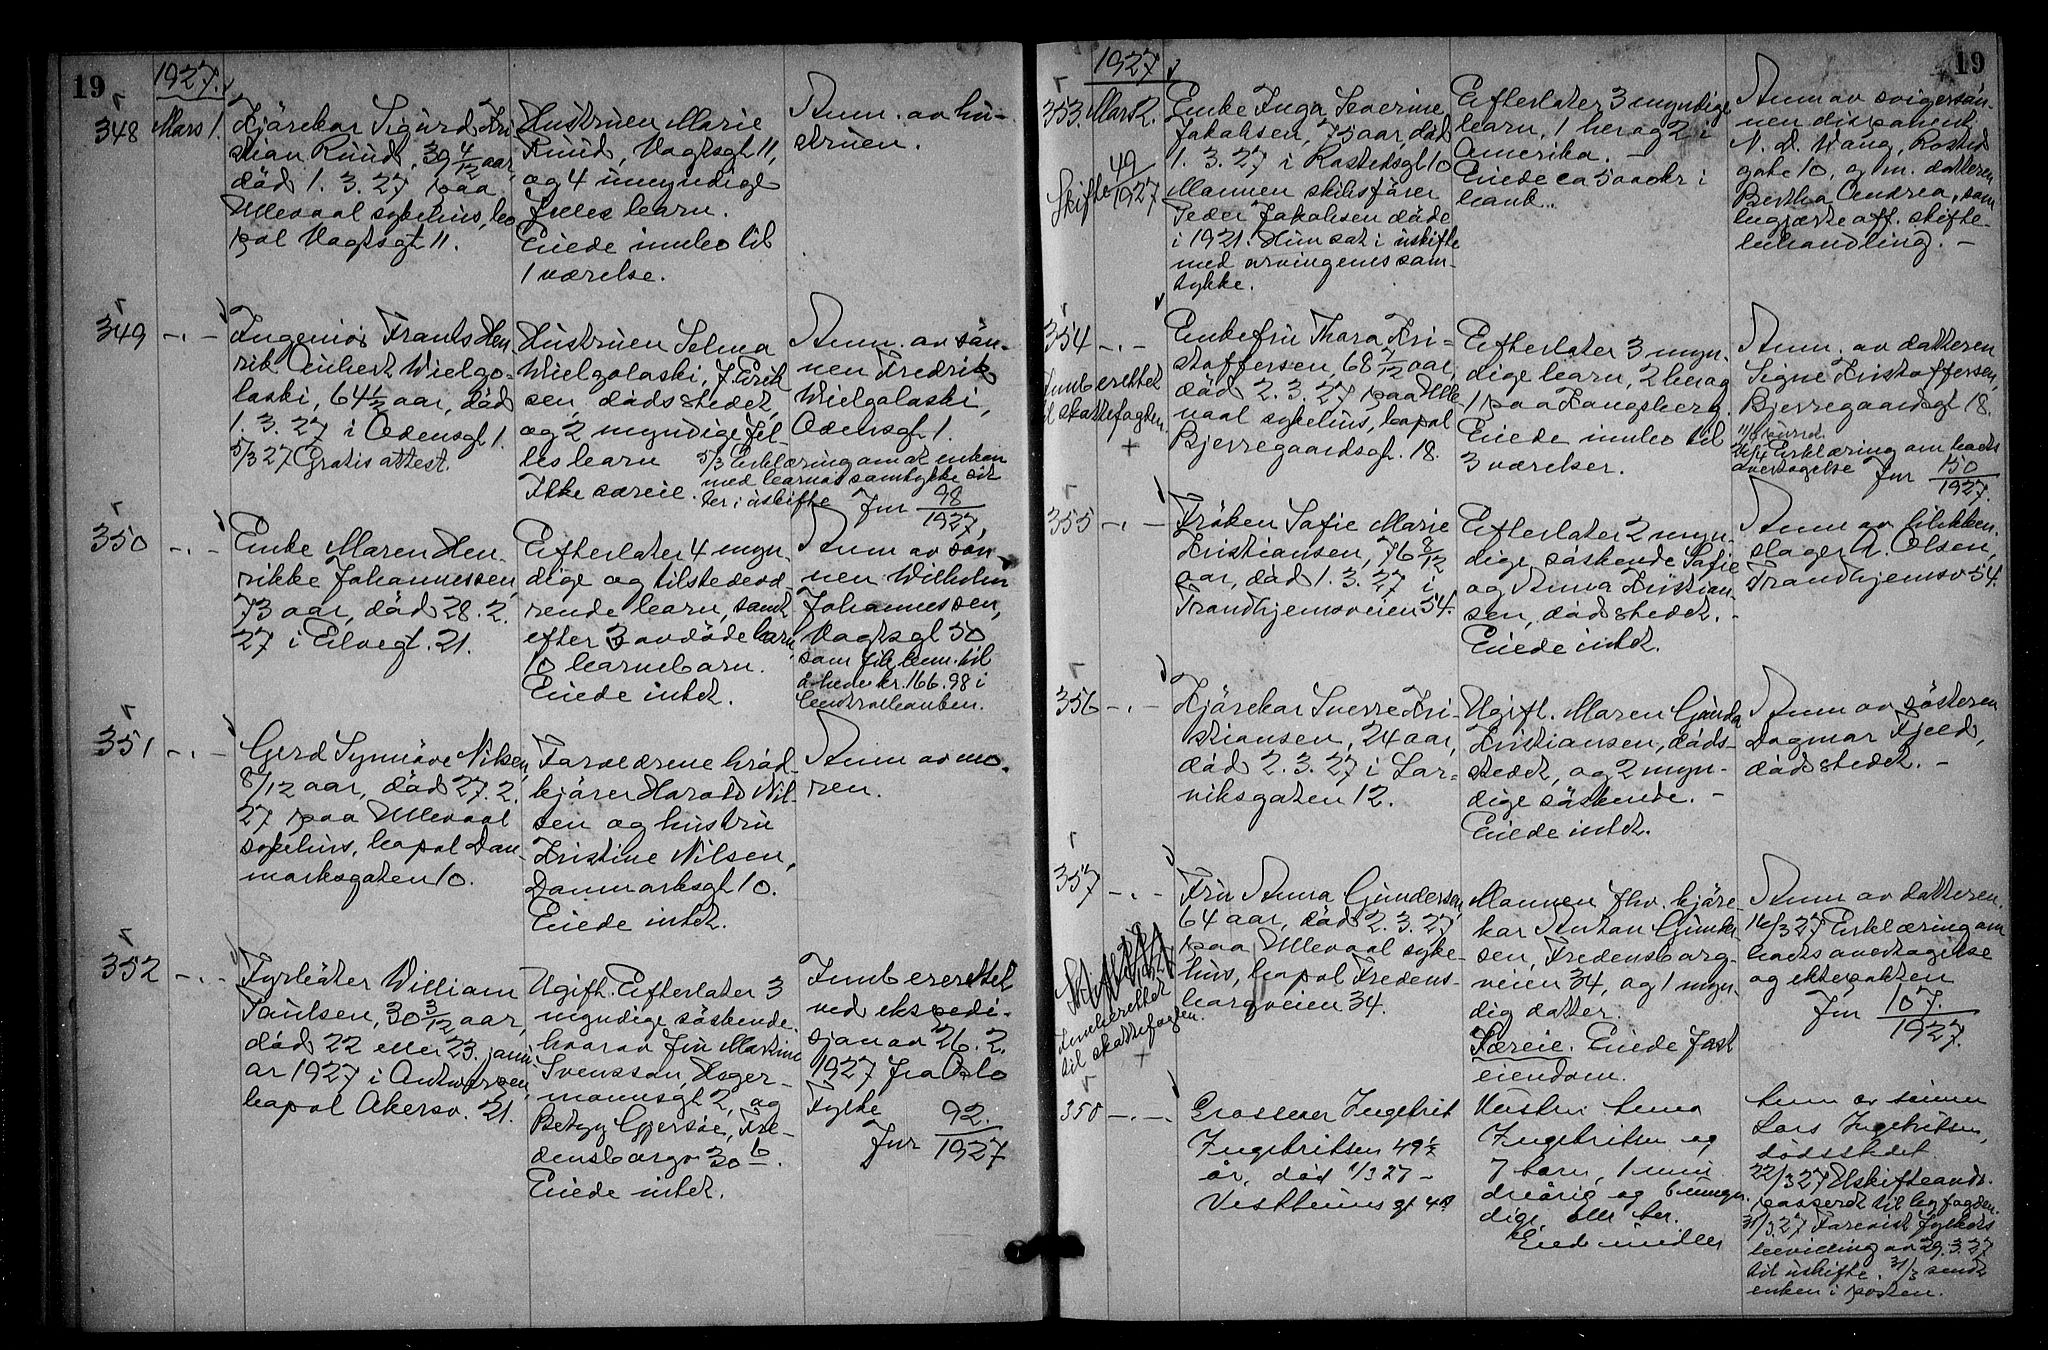 19
1927.
348
Mars 1.
Kjørekar Sigurd Kri-
stian Ruud, 39 4/12 aar,
död 1. 3. 27 paa
Ullevaal sykehus, bo
pæl Vogtsgt 11.
Hustruen Marie
Ruud, Vogtsgt 11,
og 4 umyndige
felles barn.
Eiede innbo til
1 værelse.
Anm. av hu-
struen.
349
-.-
Ingeniör Frants Hen
rik Aubert Wielgo-
laski, 64 1/2 aar, död
1. 3. 27 i Odensgt 1.
5/3 27 Gratis attest.
Hustruen Selma
Wielgolaski, f. Erik
sen, dödsstedet,
og 2 myndige fel-
les barn
Ikke særeie.
Anm. av sön-
nen Fredrik
Wielgolaski,
Odensgt 1.
5/3 Erklæring om at enken
med barnas samtykke sit
ter i uskifte Jnr 98
1927,
350
-.-
Enke Maren Hen
rikke Johannessen,
73 aar, död 28. 2.
27 i Eilvegt. 21.
Efterlater 4 myn-
dige og tilstedevæ
rende barn, samt
efter 3 avdöde barn
10 barnebarn.
Eiede intet.
Anm av sön-
nen Wilhelm
Johannessen,
Vogtsgt 50
som fik bem. til
å heve kr. 166.98 i
Centralbanken.
351
-.-
Gerd Synnöve Nilsen,
8/12 aar, död 27. 2.
27 paa Ullevaal
sykehus, bopæl Dan-
marksgaten 10.
Forældrene bröd-
kjörer Harald Nil-
sen og hustru
Kristine Nilsen,
Danmarksgt 10.
Eiede intet.
Anm av mo-
ren.
352
-.-
Fyrböter William
Paulsen, 30 3/12 aar,
död 22 eller 23. janu
ar 1927 i Antwerpen,
bopæl Akersv. 21.
Ugift. Efterlater 3
myndige söskende,
hvorav fru Martine
Svensson, Heger-
mannsgt 2, og
Betzy Gjersöe, Fre-
densborgv 30 b.
Eiede intet.
Innberettet
ved ekspedi-
sjon av 26. 2.
1927 fra Oslo
Fylke
Jnr 92.
1927
19
1927
353.
Mars 2.
Skifte 49
1927
Enke Inga Severine
Jakobsen, 75 aar, död
1. 3. 27 i Rostedsgt 10
Mannen skibsförer
Peder Jakobsen döde
i 1921. Hun sat i uskifte
med arvingenes sam-
tykke.
Efterlater 3 myndige
barn, 1 her og 2 i
Amerika. -
Eiede ca 5000 kr i
bank.
Anm av svigersön-
nen disponent
N. D. Wang, Rosted
gate 10, g. m. datteren
Bertha Andrea, som
begjærte off. skifte-
behandling. -
354
-.-
Innberettet
til skattefogden.
+
Enkefru Thora Kri-
stoffersen, 68 7/12 aar,
död 2. 3. 27 paa Ulle
vaal sykehus, bopæl
Bjerregaardsgt. 18.
Efterlater 3 myn-
dige barn, 2 her og
1 paa Kongsberg.
Eiede innbo til
3 værelser.
Anm. av datteren
Signe Kristoffersen,
Bjerregaardsgt 18.
26/4 Erklæring om boets
overtagelse Jnr 150
1927.
355
-.-
Fröken Sofie Marie
Kristiansen, 76 8/12
aar, död 1. 3. 27 i
Trondhjemsveien 54.
Efterlater 2 myn-
dige söskende Sofie
og Anna Kristian-
sen, dödsstedet. -
Eiede intet.
Anm av blikken
slager A. Olsen,
Trondhjemsv 54.
356
-.-
Kjörekar Sverre Kri-
stiansen, 24 aar,
död 2. 3. 27 i Lar-
viksgaten 12.
Ugift. Maren Gunda
Kristiansen, döds-
stedet, og 2 myn-
dige söskende. -
Eiede intet.
Anm av sösteren
Dagmar Fjeld,
dödsstedet. -
357
-.-
Innberettet
til skattefogden.
+
Fru Anna Gundersen,
64 aar, död 2. 3. 27
paa Ullevaal syke-
hus, bopæl Fredens-
borgveien 34.
Mannen fhv. kjöre-
kar Anton Gunder
sen, Fredensborg-
veien 34, og 1 myn-
dig datter.
Særeie. Eiede fast
eiendom.
Anm av datteren.
16/3 27 Erklæring om
boets overtagelse
og ektepakten
Jnr 107.
1927.
358
-.-
Grosserer Ingebrit
Ingebritsen 49 1/2
år, död 1/3 27 -
Vestheims gt 4
Hustru Anna
Ingebritsen og
7 barn, 1 min
dreårig og 6 umyn.
dige, alle her.
Eiede midler
Anm av sönnen
Lars Ingebritsen,
dödsstedet.
22/3 27 Uskifteands.
passert til byfogden.
31/3 27 Forevist fylkets
bevilling av 29. 3. 27
til uskifte. 31/3 sendt
enken i posten.